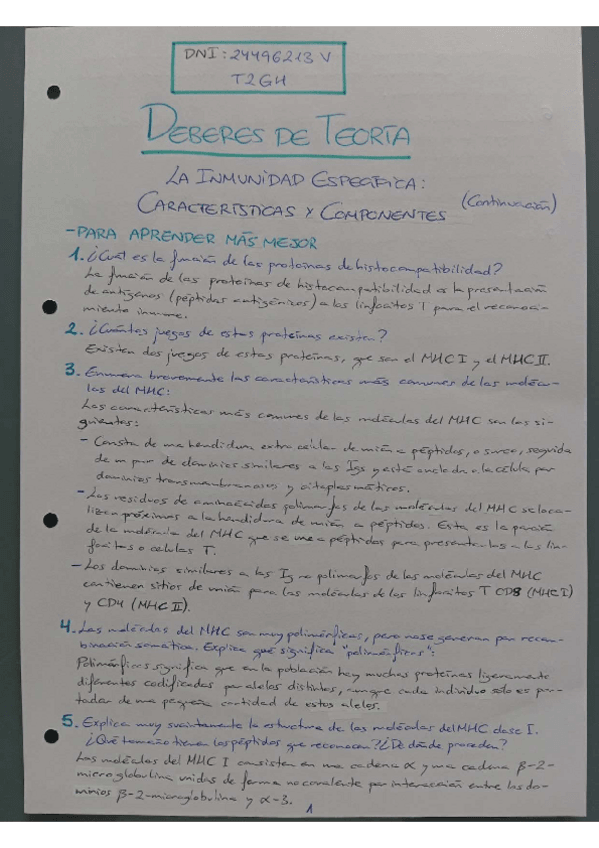 DNI: 24496213 V
T2GH
DEBERES DE TEORÍA
LA INMUNIDAD ESPECÍFICA:
CARACTERÍSTICAS Y COMPONENTES (Continuación)
- PARA APRENDER MÁS MEJOR
1. ¿Cuál es la función de las proteínas de histocompatibilidad?
La función de las proteínas de histocompatibilidad es la presentación
de antígenos (péptidos antigénicos) a los linfocitos T para el reconoci-
miento inmune.
2. ¿Cuántos juegos de estas proteínas existen?
Existen dos juegos de estas proteínas, que son el MHC I y el MHC II.
3. Enumera brevemente las características más comunes de las molécu-
las del MHC:
Las características más comunes de las moléculas del MHC son las si-
guientes:
- Consta de una hendidura extracelular de unión a péptidos, o surco, seguida
de un par de dominios similares a las Igs y está anclada a la célula por
dominios transmembranosos y citoplasmáticos.
- Los residuos de aminoácidos polimorfos de las moléculas del MHC se loca-
lizan próximos a la hendidura de unión a péptidos. Esta es la porción
de la molécula del MHC que se une a péptidos para presentarlos a los lin-
focitos o células T.
- Los dominios similares a las Ig no polimorfos de las moléculas del MHC
contienen sitios de unión para las moléculas de los linfocitos T CD8 (MHC I)
y CD4 (MHC II).
4. Las moléculas del MHC son muy polimórficas, pero no se generan por recom-
binación somática. Explica qué significa "polimórficas":
Polimórficas significa que en la población hay muchas proteínas ligeramente
diferentes codificadas por alelos distintos, aunque cada individuo sólo es por-
tador de una pequeña cantidad de estos alelos.
5. Explica muy sucintamente la estructura de las moléculas del MHC clase I.
¿Qué tamaño tienen los péptidos que reconocen? ¿De dónde proceden?
Las moléculas del MHC I consisten en una cadena α y una cadena β-2-
microglobulina unidas de forma no covalente por interacción entre los do-
minios β-2-microglobulina y α-3.
1